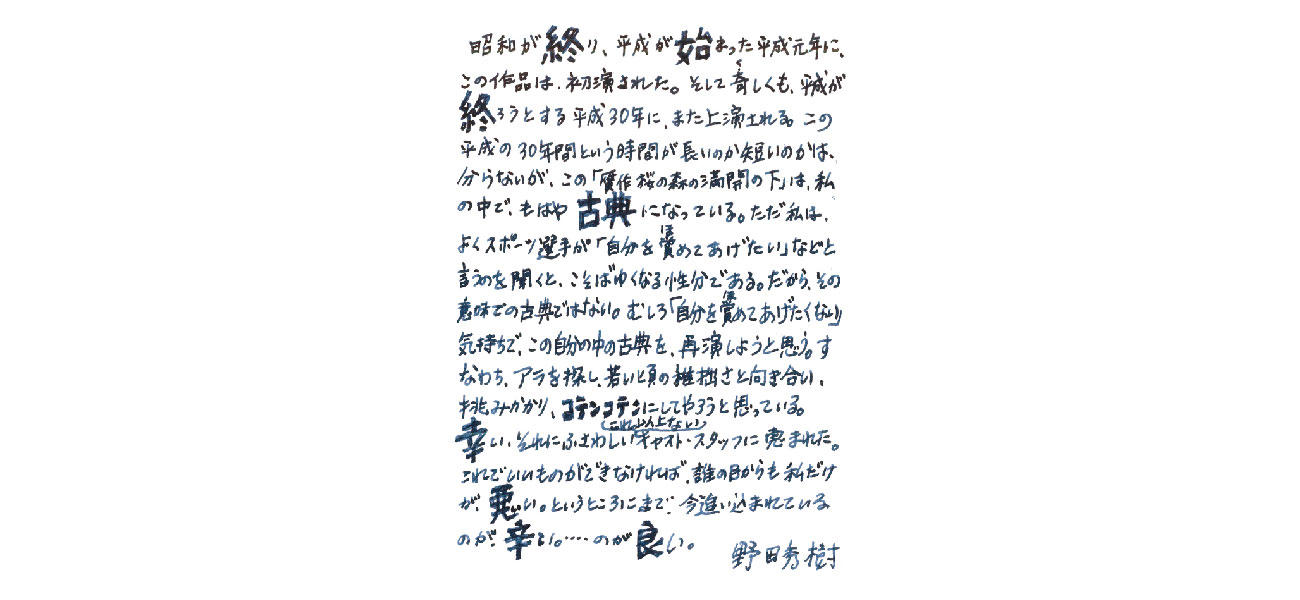 昭和が終り、平成が始まった平成元年に、
この作品は、初演された。そして奇しくも、平成が
終ろうとする平成30年に、また上演される。この
平成の30年間という時間が長いのか短いのかは、
分らないが、この「贋作 桜の森の満開の下」は、私
の中で、もはや古典になっている。ただ私は、
よくスポーツ選手が「自分を賞めてあげたい」などと
言うのを聞くと、こそばゆくなる性分である。だから、その
意味での古典ではない。むしろ「自分を賞めてあげたくない」
気持ちで、この自分の中の古典を、再演しようと思う。す
なわち、アラを探し、若い頃の稚拙さと向き合い、
挑みかかり、コテンコテンにしてやろうと思っている。
幸い、それにふさわしい(これ以上ない)キャスト・スタッフに恵まれた。
これでいいものができなければ、誰の目からも私だけ
が、悪い。というところにまで、今追い込まれている
のが、辛い。‥‥のが良い。
野田秀樹